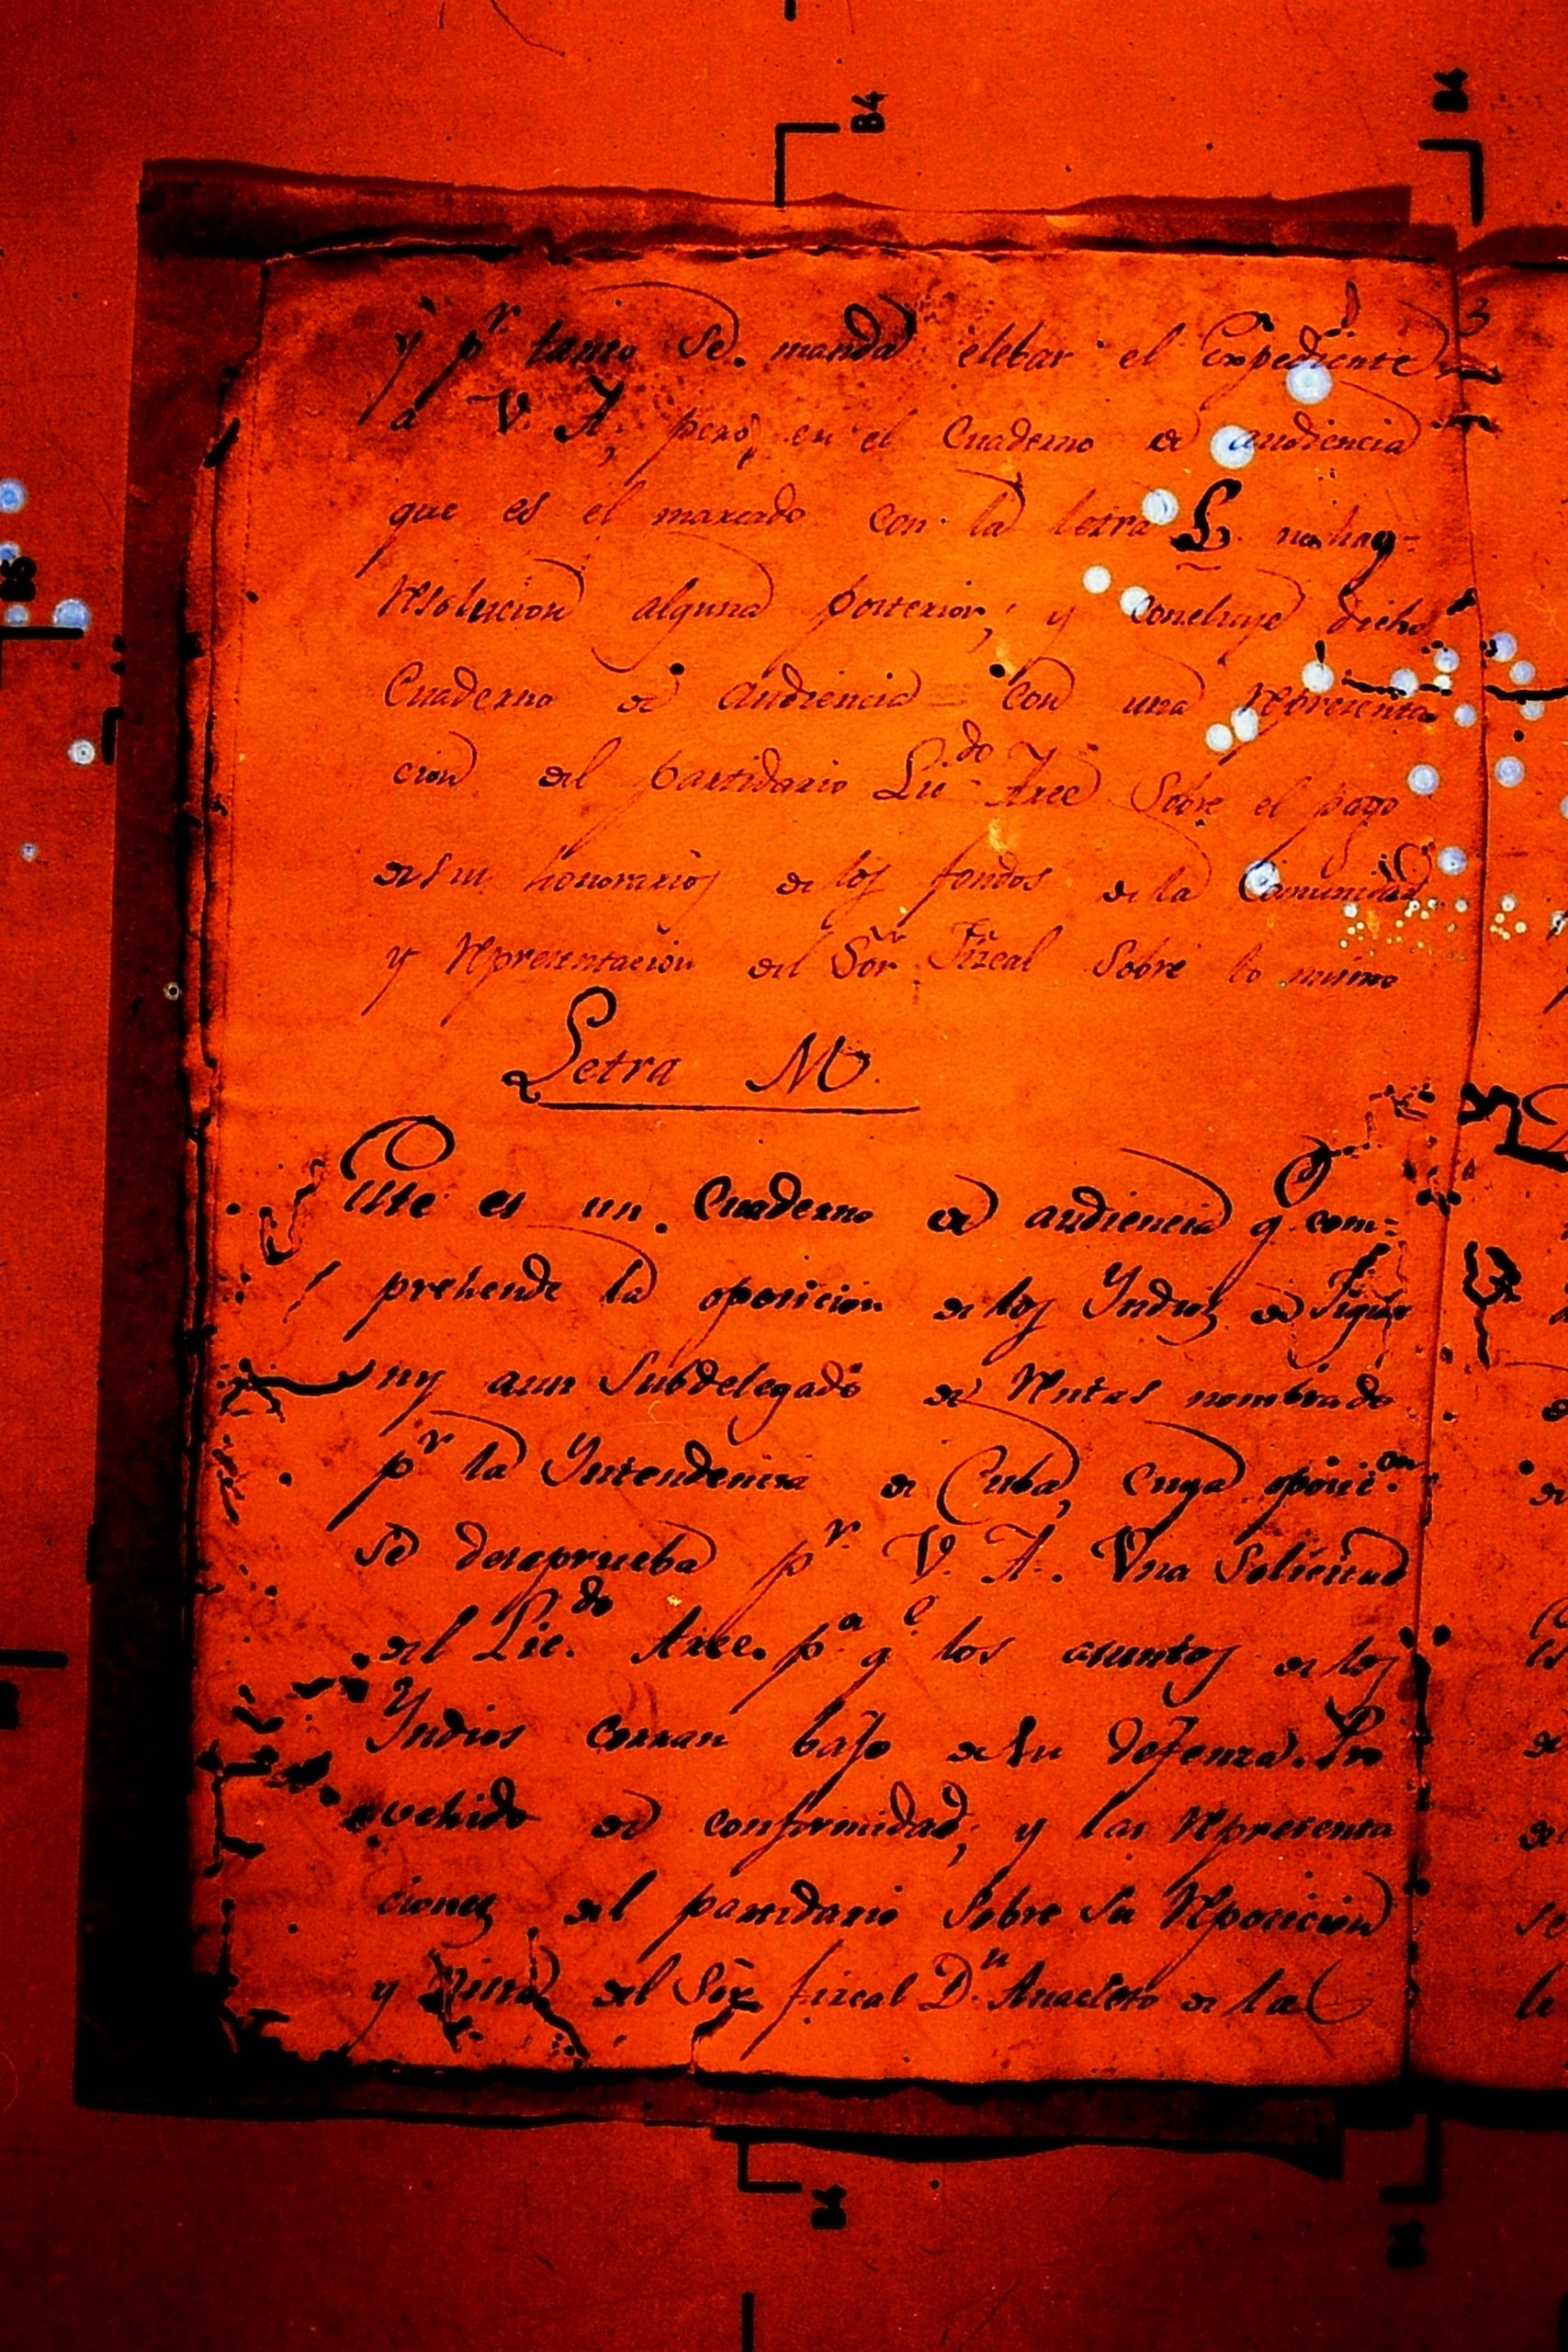 B4
B4
y pr tanto se manda elebar el Expediente
a V. A; pero, en el Cuaderno de audiencia
que es el marcado con la letra L. no hay=
resolucion alguna posterior; y concluye dicho
Cuaderno de audiencia = con una representa
cion del partidario Licdo Arce sobre el pago
de su honorarios de los fondos de la Comunidad
y representacion del Sor Fizcal sobre lo mismo
Letra M.
Este es un Cuaderno de audiencia q. com=
prehende la oposicion de los Yndios de Jiguа
ny aun Subdelegado de Rentas nombrado
pr la Yntendencia de Cuba, cuya oposicon
se desaprueba pr. V. A. Vna Solicitud
del Lic.do Arce. pa qe los asuntos de los
Yndios corran bajo de su defenza. Pro
vehido de conformidad; y las representa
ciones del partidario sobre su reposicion
y del Sor fizcal Dn Anacleto de la
B4